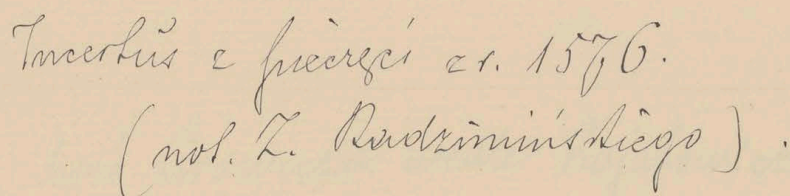 Incertus z pieczęci z r. 1576.
(not. Z. Radzimińskiego).